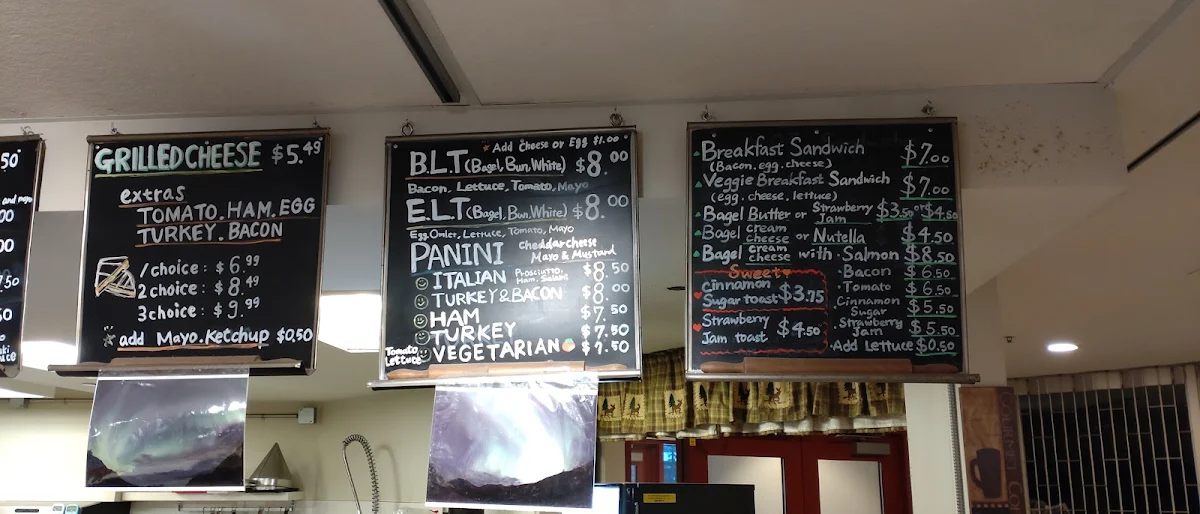 50
and mayo
00
00
7.50
50
GRILLED CHEESE $5.49
extras
TOMATO. HAM. EGG
TURKEY. BACON
1 choice : $6.99
2 choice : $8.49
3 choice : $9.99
add Mayo. Ketchup $0.50
Add cheese or Egg $1.00
B.L.T (Bagel, Bun, White) $8.00
Bacon, Lettuce, Tomato, Mayo
E.L.T (Bagel, Bun, White) $8.00
Egg Omlet, Lettuce, Tomato, Mayo
PANINI Cheddar cheese
Mayo & Mustard
ITALIAN Prosciutto, Ham, Salami $8.50
TURKEY & BACON $8.00
HAM $7.50
TURKEY $7.50
Tomato Lettuce VEGETARIAN $7.50
Breakfast Sandwich $7.00
(Bacon. egg. cheese)
Veggie Breakfast Sandwich $7.00
(egg. cheese, lettuce)
Bagel Butter or Strawberry Jam $3.50 or $4.50
Bagel cream cheese or Nutella $4.50
Bagel cream cheese with · Salmon $8.50
· Bacon $6.50
· Tomato $6.50
Cinnamon Sugar $5.50
Strawberry Jam $5.50
· Add Lettuce $0.50
Sweet
Cinnamon
Sugar toast $3.75
Strawberry
Jam toast $4.50